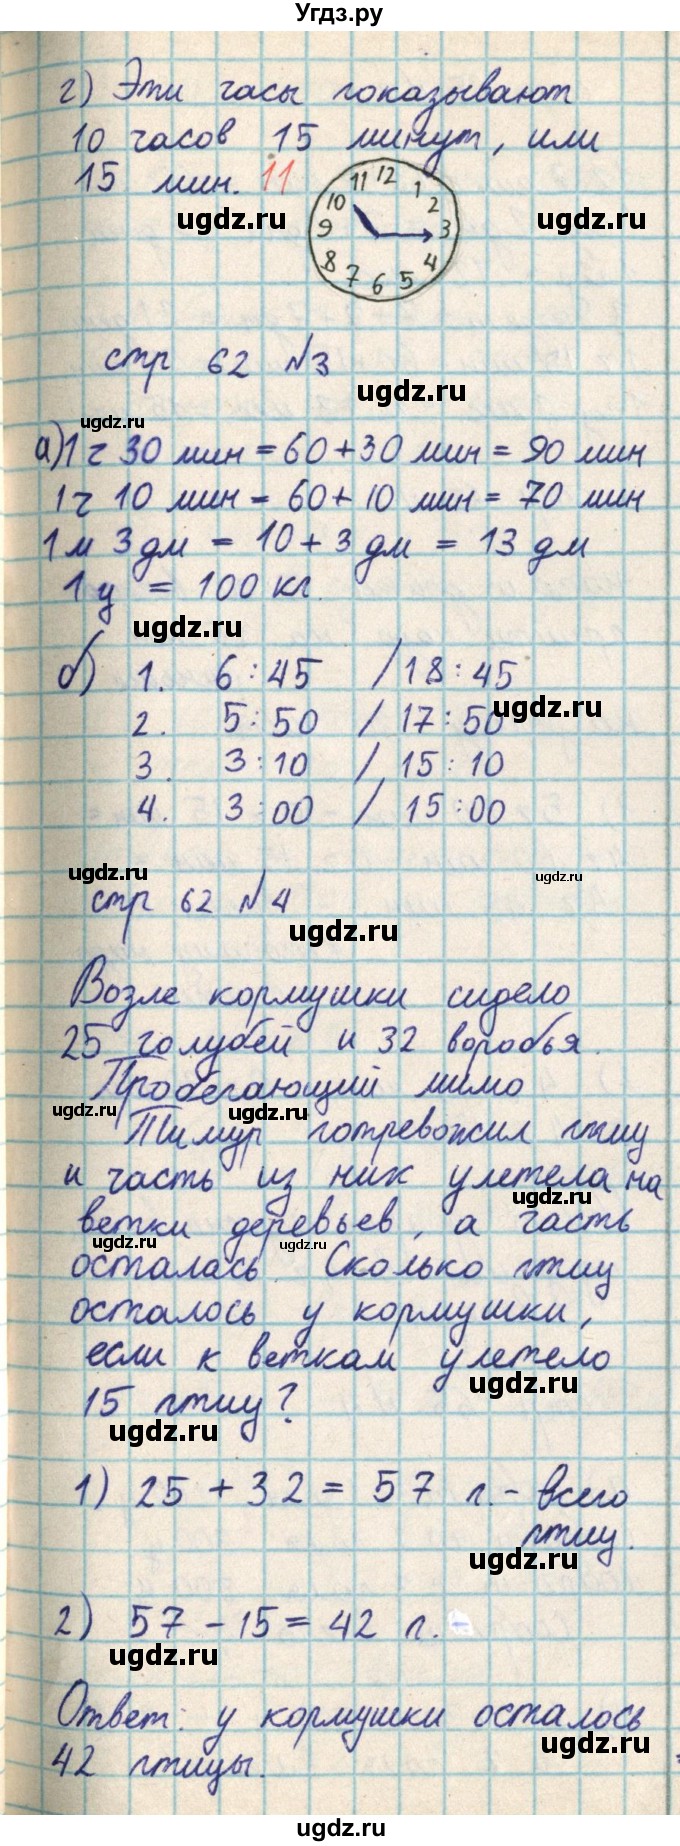 Угдз.ру
г) Эти часы показывают
10 часов 15 минут, или
15 мин. 11
ugdz.ru ugdz.ru
12
11 1
10 2
9 3
8 4
7 6 5
стр 62 №3
ugdz.ru
ugdz.ru
а) 1 ч 30 мин = 60 + 30 мин = 90 мин
1 ч 10 мин = 60 + 10 мин = 70 мин
1 м 3 дм = 10 + 3 дм = 13 дм
1 ц = 100 кг.
ugdz.ru
б) 1. 6:45 / 18:45
ugdz.ru
2. 5:50 / 17:50
3. 3:10 / 15:10
4. 3:00 / 15:00
ugdz.ru ugdz.ru
стр 62 №4
ugdz.ru
Возле кормушки сидело
25 голубей и 32 воробья.
Пробегающий мимо
ugdz.ru ugdz.ru
Тимур потревожил птиц
и часть из них улетела на
ugdz.ru
ветки деревьев, а часть
ugdz.ru ugdz.ru
осталась. Сколько птиц
осталось у кормушки,
если к веткам улетело
ugdz.ru
15 птиц?
ugdz.ru
1) 25 + 32 = 57 п. - всего
птиц.
ugdz.ru
2) 57 - 15 = 42 п. -
ugdz.ru
Ответ: у кормушки осталось
ugdz.ru
42 птицы.
ugdz.ru